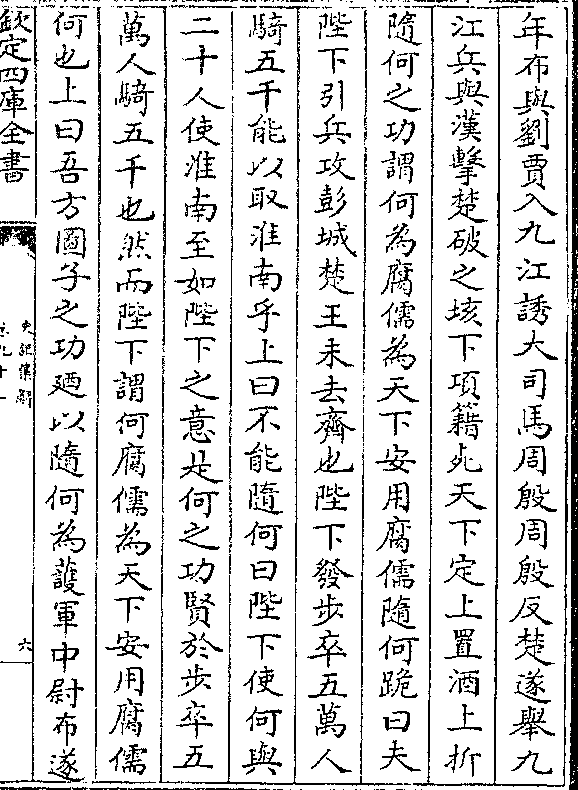 年布與劉賈入九江誘大司馬周殷周殷反楚遂舉九
江兵與漢擊楚破之垓下項籍死天下定上置酒上折
隨何之功謂何為腐儒為天下安用腐儒隨何跪曰夫
陛下引兵攻彭城楚王未去齊也陛下發步卒五萬人
騎五千能以取淮南乎上曰不能隨何曰陛下使何與
二十人使淮南至如陛下之意是何之功賢於步卒五
萬人騎五千也然而陛下謂何腐儒為天下安用腐儒
何也上曰吾方圖子之功廼以隨何為護軍中尉布遂
欽定四庫全書
史記集解
卷九十一
六